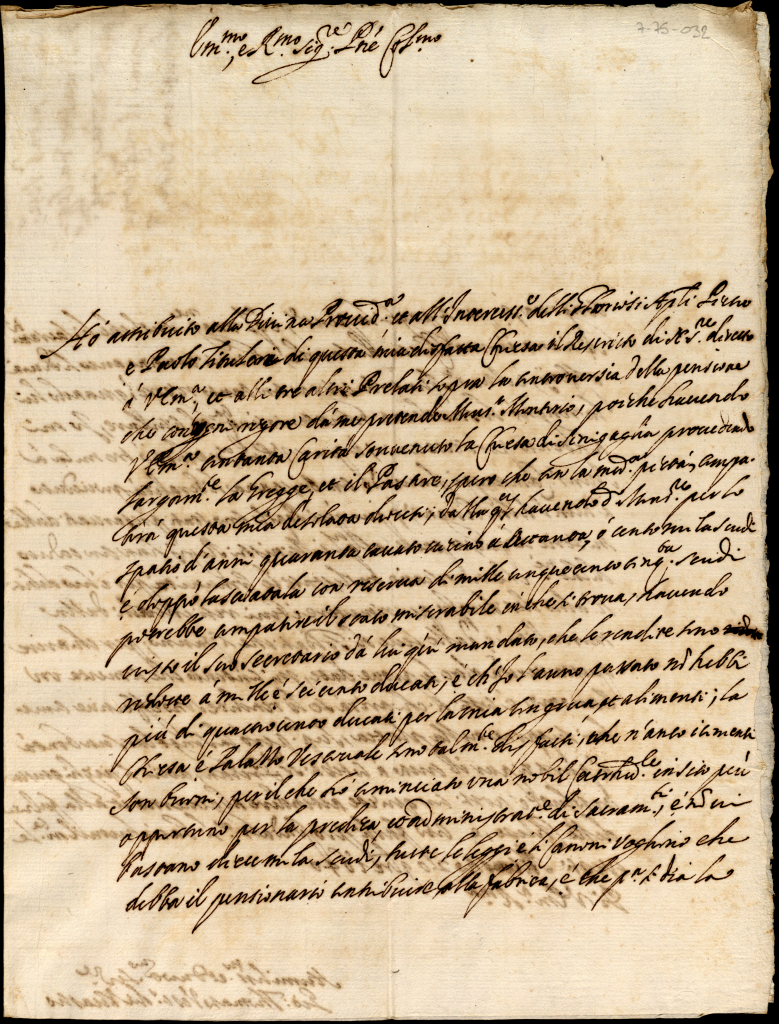 7-75-032
Em.mo, e R.mo Sig.re Pñe Col.mo
Hó attribuito alla Divina Provid.a et all'Intercess.e delli Gloriosi Apli Pietro
e Paolo Titulari di questa mia disfatta Chiesa il Rescritto di N. S.re diretto
á V. Em.a, et alli tre altri Prelati sopra la controversia della pensione
che con ogni rigore dá me pretende Mons.r, poiche havendo
V. Em.a con tanta Carità sovvenuto la Chiesa di Sinigaglia provedendo
largam.te la Gregge, et il Pastore, spero che con la med.a pietá, compa-
tirá questa mia desolata diocesi, dalla q.le havendo d.o Mons.re per lo
spatio d'anni quaranta cavato vicino á ottanta, ó cento milla scudi
é doppo lasciatala con reserva di mille cinquecento scudi
potrebbe compatire il stato miserabile in che si trova, havendo
visto il suo secretario dá lui quí mandato, che le rendite sono
ridotte á mille é seicento ducati, é ch'Io l'anno passato nõ hebbi
piú di quattrocento ducati per la mia congrua et alimenti; la
Chiesa é Palazzo Vescovale sono talm.te disfatti, che n'anco i cimenti
son buoni, per il che hó cominciato una nobil Cathed.le in sito piú
opportuno per la predica, et administrat.e di Sacram.ti, é nõ ci
bastano dieci milla scudi, tutte le leggi é li Canoni vogliono che
debba il pensionario contribuire alla fabrica, é che p.a si dia la